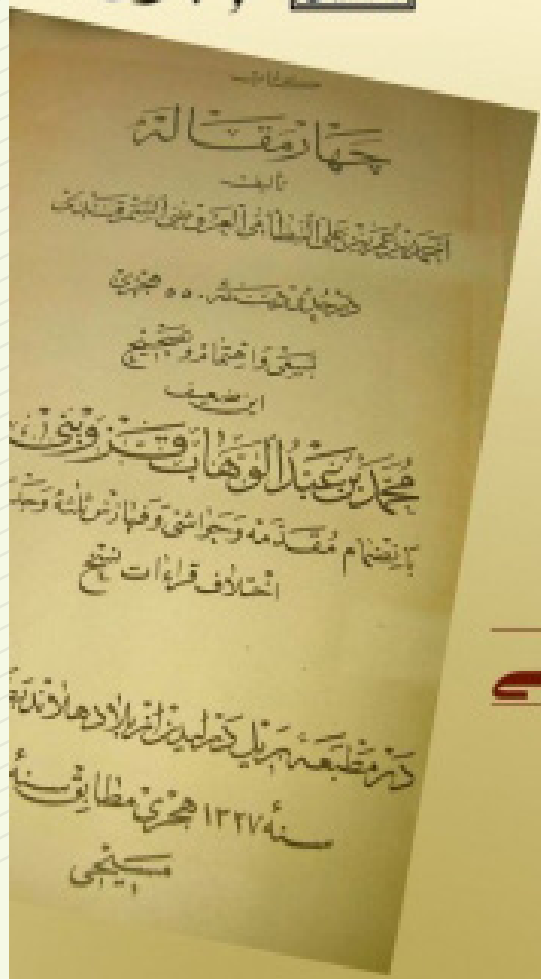 كتاب
چهار مقاله
تأليف
احمد بن عمر بن علی النظامی العروضی السمرقندی
در حدود سنهٔ ۵۵۰ هجری
بسعی و اهتمام و تصحیح
این ضعیف
محمد بن عبدالوهاب قزوینی
بانضمام مقدمه و حواشی و فهارس ثلثه و
اختلاف قراءات نسخ
در مطبعهٔ بریل در لیدن از بلاد هلاند
سنهٔ ۱۳۲۷ هجری مطابق سنهٔ
مسیحی